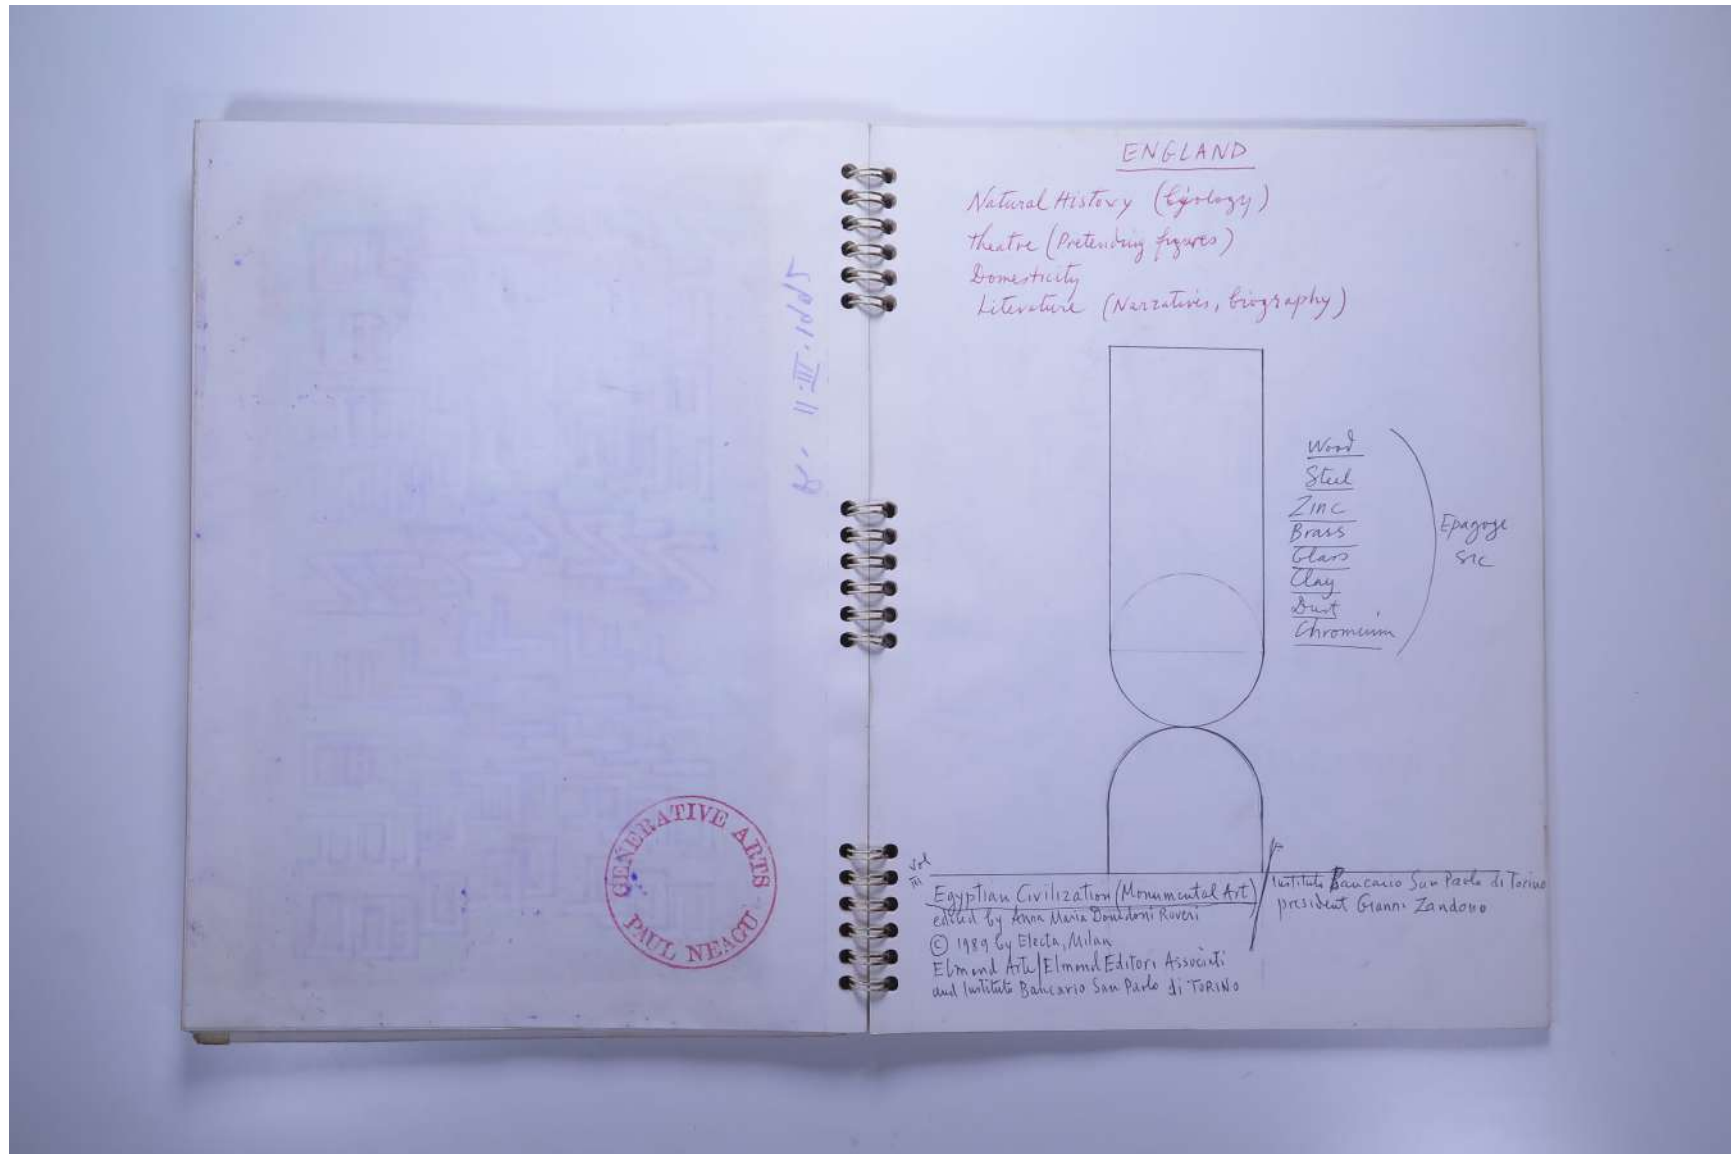 GENERATIVE ARTS
PAUL NEAGU
ENGLAND
Natural History
Theatre (Pretending figures)
Domesticity
Literature (Narratives, biography)
Wood
Steel
Zinc
Brass
Glass
Clay
Dust
Chromeium
Epagoge
sic
Vol
III
Egyptian Civilization (Monumental Art)
edited by Anna Maria Donadoni Roveri
© 1989 by Electa, Milan
Elmond Arte/Elmond Editori Associati
and Instituto Bancario San Paolo di TORINO
Instituto Bancario San Paolo di Torino
president Gianni Zandono